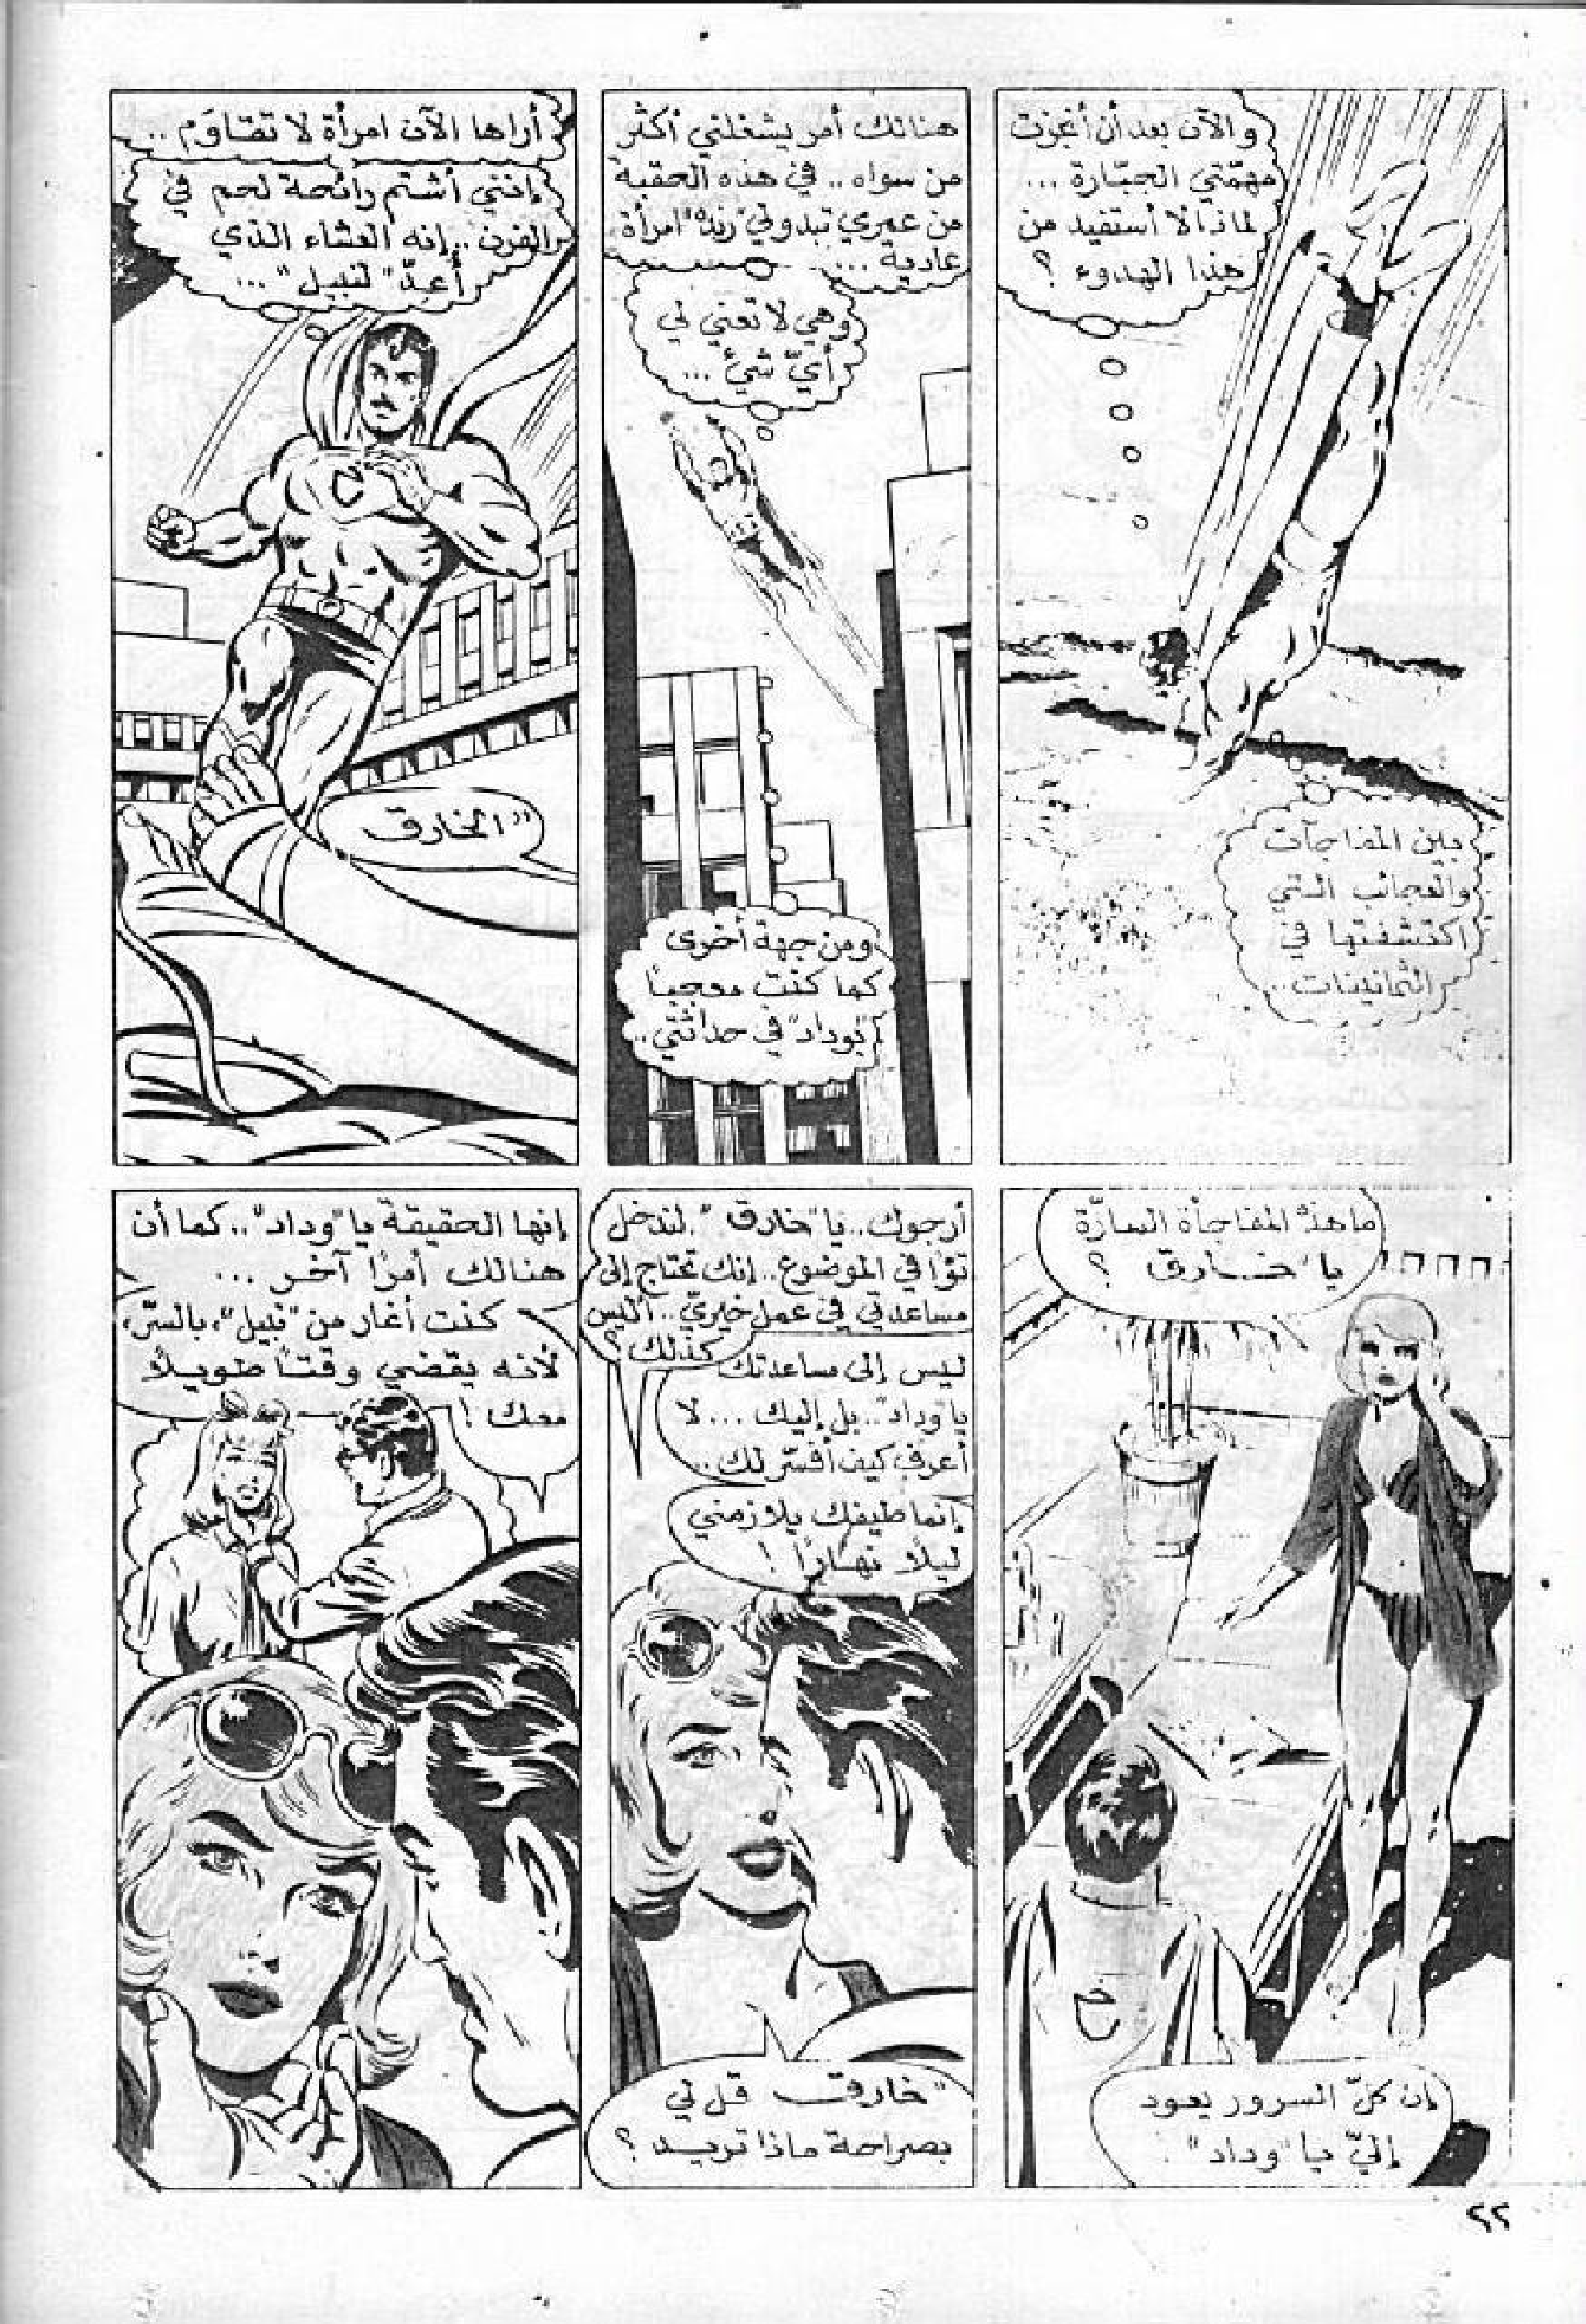 والآن بعد أن أنجزت
مهمّتي الجبّارة ...
لماذا لا أستفيد من
هذا الهدوء ؟
بين المفاجآت
والعجائب التي
اكتشفتها في
الثمانينات..
هنالك أمر يشغلني أكثر
من سواه .. في هذه الحقبة
من عمري تبدو لي "رندة" امرأة
عادية ...
وهي لا تعني لي
أيّ شيء ...
ومن جهة أخرى
كما كنت معجبًا
"بوداد" في حداثتي ..
أراها الآن امرأة لا تقاوم ..
إنني أشتم رائحة لحم في
الفرن .. إنه العشاء الذي
أُعِدّ "لنبيل" ...
"الخارق"
ما هذه المفاجأة السارّة
يا "خارق" ؟
إن كلّ السرور يعود
إليّ يا "وداد" .
أرجوك .. يا "خارق" . لندخل
توًّا في الموضوع .. إنك تحتاج إلى
مساعدتي في عمل خيريّ .. أليس
كذلك ؟
ليس إلى مساعدتك
يا "وداد" .. بل إليك ... لا
أعرف كيف أفسّر لك ..
إنما طيفك يلازمني
ليلًا نهارًا !
"خارق" قل لي
بصراحة ماذا تريد ؟
إنها الحقيقة يا "وداد" .. كما أن
هنالك أمرًا آخر ...
كنت أغار من "نبيل"، بالسّر،
لأنه يقضي وقتًا طويلًا
معك !
٢٢